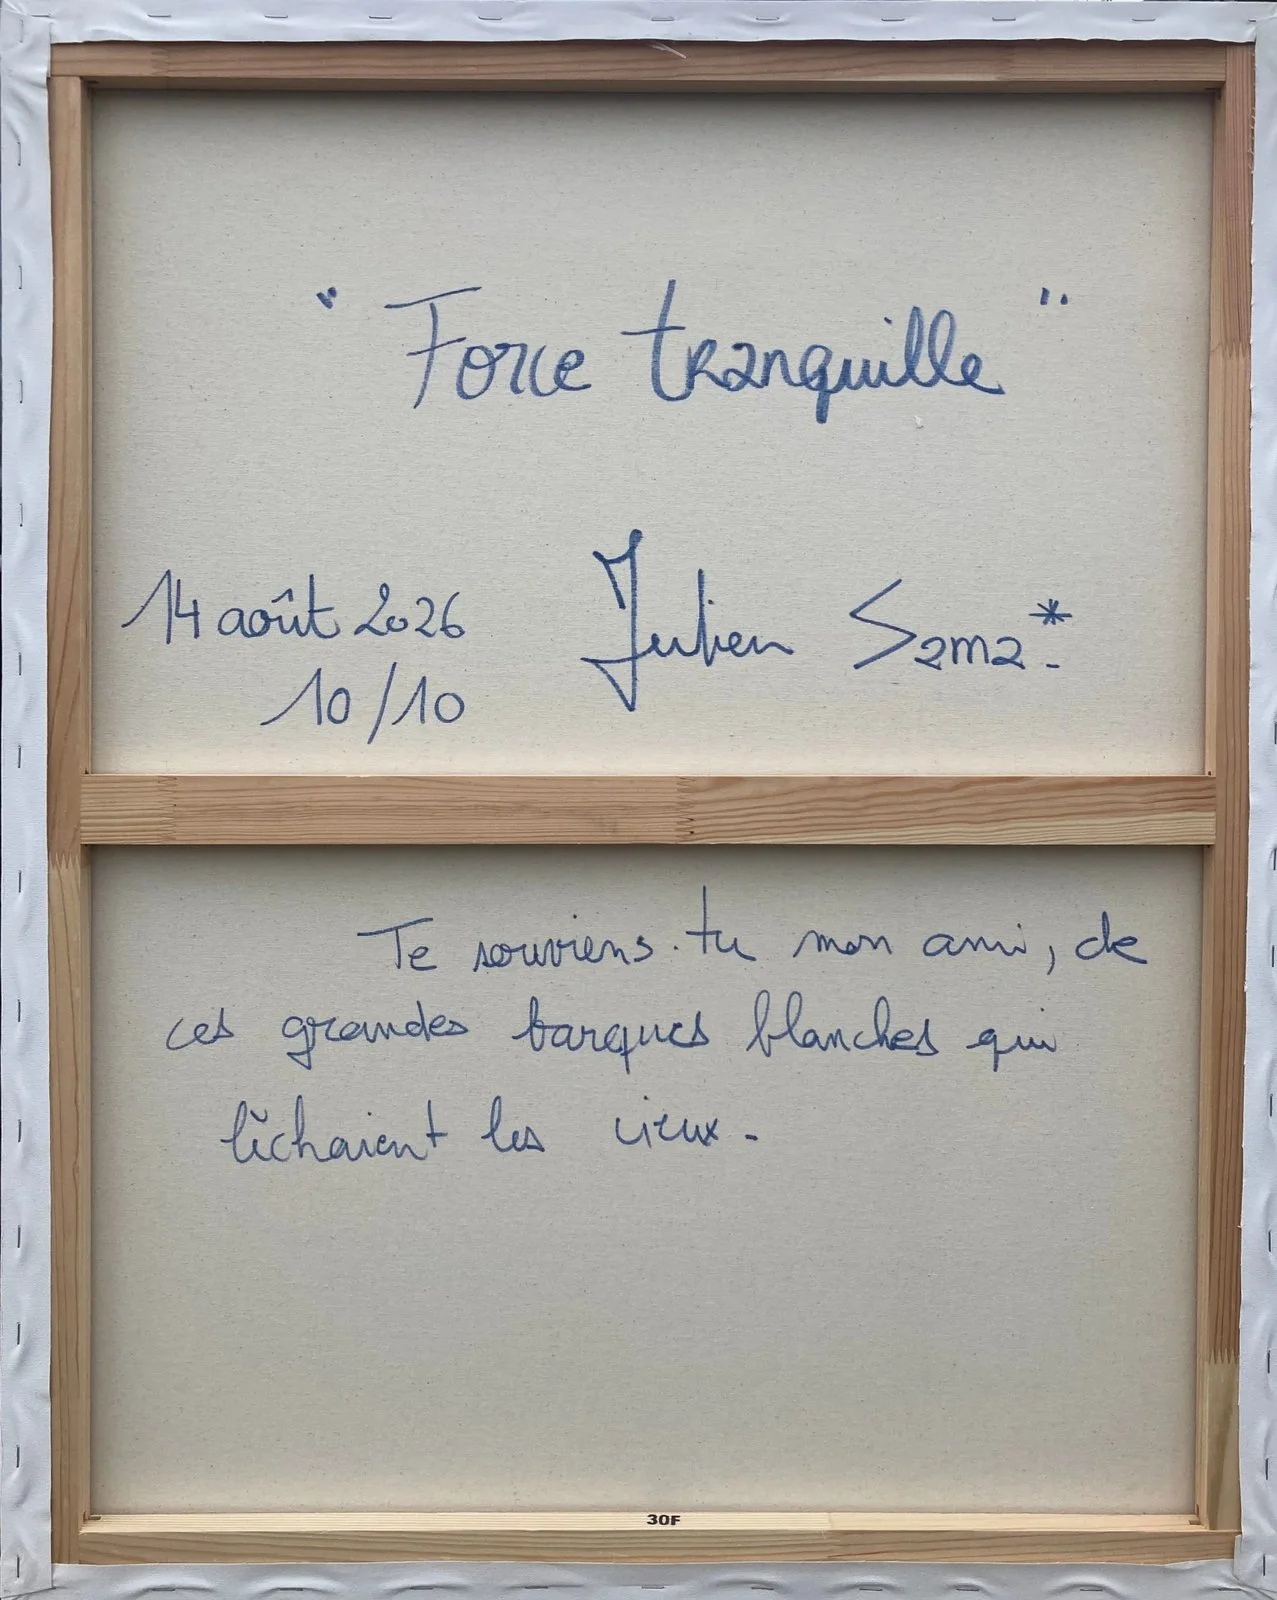 " Force tranquille "
14 août 2026
10/10
Julien Sama*.
Te souviens-tu mon ami, de
ces grandes barques blanches qui
lêchaient les cieux.
30F